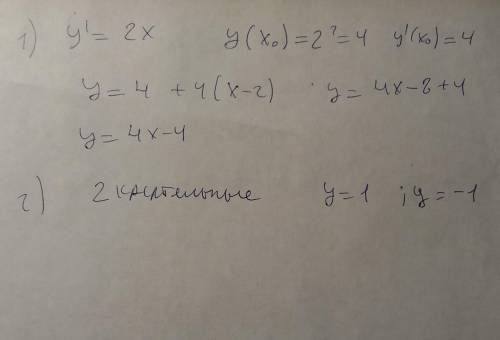 1) y' = 2x y(x₀) = 2² = 4 y'(x₀) = 4
y = 4 + 4(x-2) y = 4x-8+4
y = 4x-4
2) 2 касательные y = 1 ; y = -1